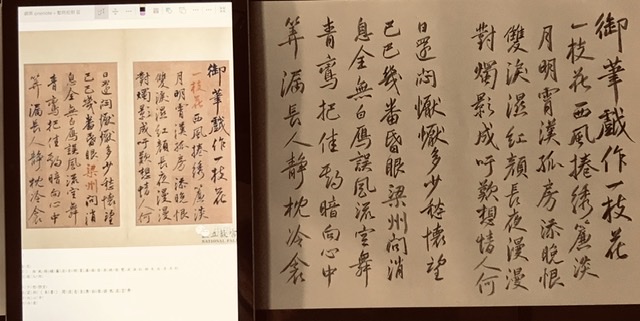 御筆戲作一枝花
一枝花西風捲綉簾淡
月明霄漢孤房添晚恨
雙淚濕紅顏長夜漫漫
對燭影成吁歎想情人何
日還悶懨懨多少愁懷望
巴巴幾番昏眼梁州問消
息全無白鴈誤風流空舞
青鸞把佳期暗向心中
算漏長人靜枕冷衾
NATIONAL
御筆戲作一枝花
一枝花西風捲綉簾淡
月明霄漢孤房添晚恨
雙淚濕紅顏長夜漫漫
對燭影成吁歎想情人何
日還悶懨懨多少愁懷望
巴巴幾番昏眼梁州問消
息全無白鴈誤風流空舞
青鸞把佳期暗向心中
算漏長人靜枕冷衾